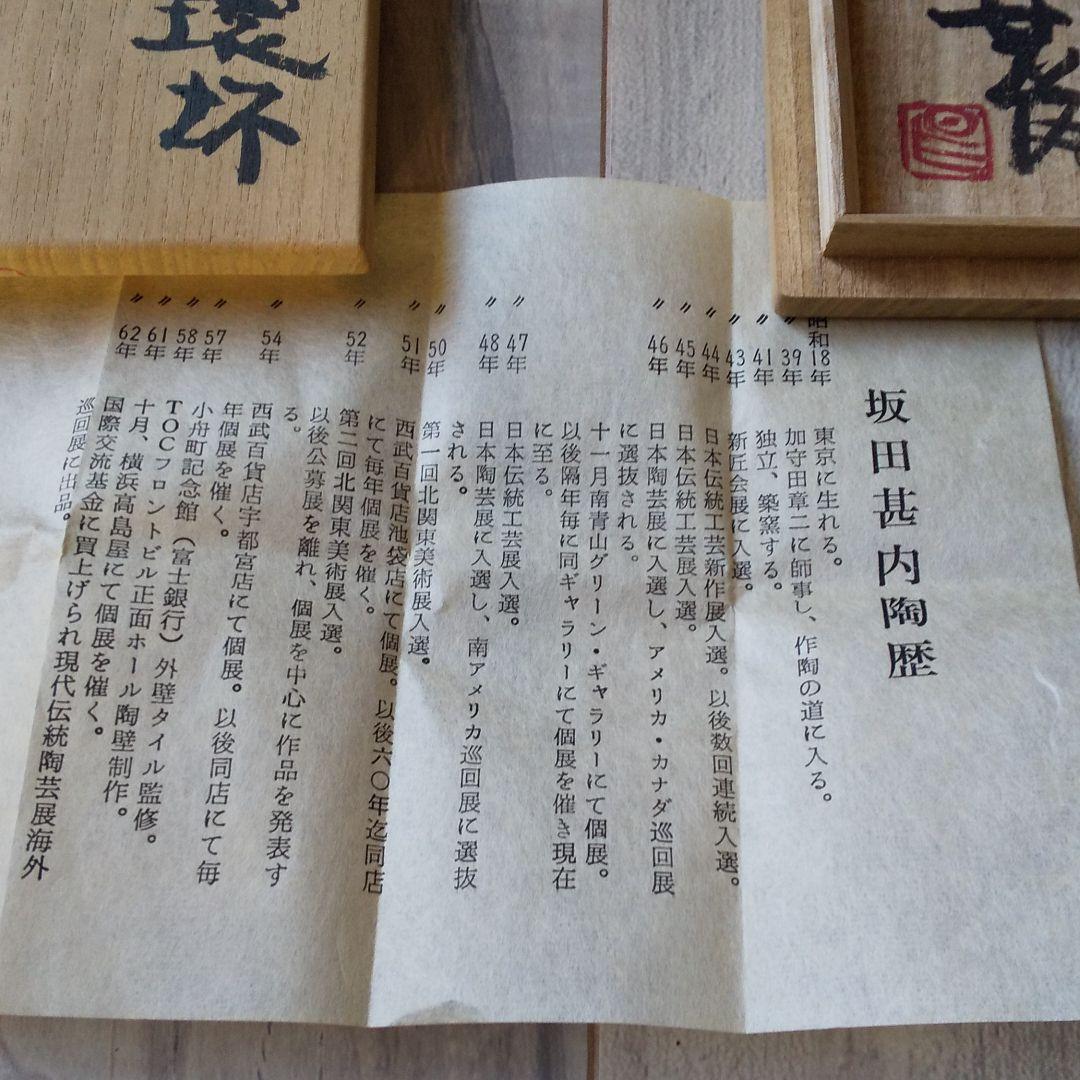 環
杯
甚
内
坂田甚内陶歴
昭和18年 東京に生れる。
〃 39年 加守田章二に師事し、作陶の道に入る。
〃 41年 独立、築窯する。
〃 43年 新匠会展に入選。
〃 44年 日本伝統工芸新作展入選。以後数回連続入選。
〃 45年 日本伝統工芸展入選。
〃 46年 日本陶芸展に入選し、アメリカ・カナダ巡回展
に選抜される。
十一月南青山グリーン・ギャラリーにて個展。
以後隔年毎に同ギャラリーにて個展を催き現在
に至る。
〃 47年 日本伝統工芸展入選。
〃 48年 日本陶芸展に入選し、南アメリカ巡回展に選抜
される。
〃 50年 第一回北関東美術展入選。
〃 51年 西武百貨店池袋店にて個展。以後六〇年迄同店
にて毎年個展を催く。
〃 52年 第二回北関東美術展入選。
以後公募展を離れ、個展を中心に作品を発表す
る。
〃 54年 西武百貨店宇都宮店にて個展。以後同店にて毎
年個展を催く。
〃 57年 小舟町記念館（富士銀行）外壁タイル監修。
〃 58年 TOCフロントビル正面ホール陶壁制作。
〃 61年 十月、横浜高島屋にて個展を催く。
〃 62年 国際交流基金に買上げられ現代伝統陶芸展海外
巡回展に出品。